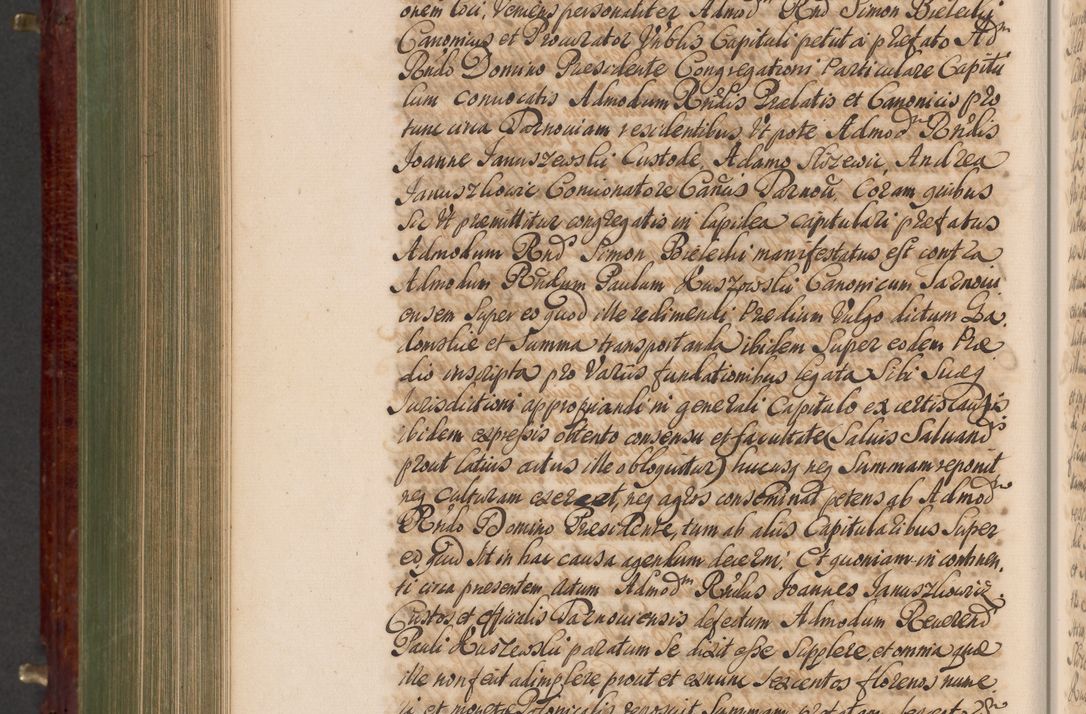 onem loci, Veniens personaliter Admodm Rnd Simon Bielecki
Canonicus et Procurator Vnblis Capituli petut a prefato Adm
Rndo Domino Presidente Congregationi Particulare Capitu
lum convocatis Admodum Rndis Prelatis et Canonicis pro
tunc circa Tarnoviam residentibus Vt pote Admodm Rndis
Joanne Januszewski Custode, Adamo Andrea
Januszkowic Concionatore Cancis Tarnou. Coram quibus
sic Vt premittitur congregatis in lapidea capitulari prefatus
Admodum Rnds Simon Bielecki manifestatus est contra
Admodum Rndum Paulum Kuszowski Canonicum Tarnoui
ensem super eo quod ille redimendi Predium Vulgo dictum Ga
domskie et Summa transportanda ibidem super eodem Prae
dio inscripta pro Variis fundationibus legata Sibi Suaeq
Jurisdictioni appropriandi in generali Capitulo ex certis causis
ibidem expressis obtento consensu et facultate (Saluis Saluandis
prout latius actus ille obloquitur) hucusq neq Summam reponit
neq culturam exercet, neq agros conseminat petens ab Admodm
Rndo Domino Presidente, tum ab aliis Capitularibus Super
eo, quid sit in hac causa agendum decerni. Et quoniam in continen,
ti circa presentem actum Admodm Rndus Joannes Januszkowic
Custos, et officialis Tarnouiensis defectum Admodum Reverend
Pauli Kuszewski paratum se dicit esse supplere, et omnia quae
ille non fecit adimplere prout et ex nunc sexcentos florenos nume
ri et monetae Polonicalis reposuit Summam